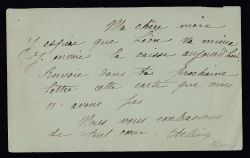 Ma chère mère
J'espère que Léon va mieux
J'envoie la caisse aujourd'hui
Renvoie dans ta prochaine
lettre cette carte que nous
n'avons pas
Nous vous embrassons
de tout cœur